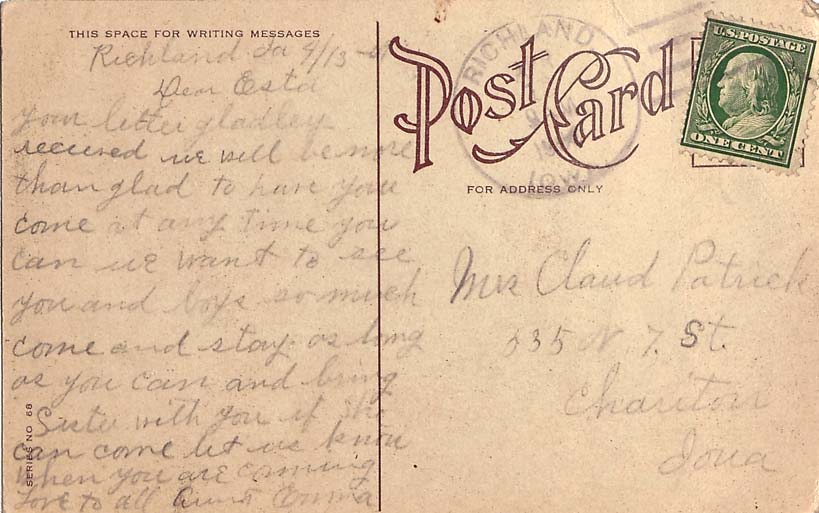 THIS SPACE FOR WRITING MESSAGES
Richland Ia 9/13
Dear Esta
Your letter gladley
received we will be more
than glad to have you
come at any time you
can we want to see
you and boys so much
come and stay as long
as you can and bring
Sister with you if she
can come let us know
when you are coming
Love to all Aunt Emma
SERIES NO 68
Post Card
FOR ADDRESS ONLY
RICHLAND
IOWA
U.S. POSTAGE
ONE CENT
Mrs Claud Patrick
535 N 7. St.
Chariton
Iowa